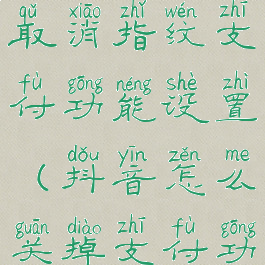 qǔ xiāo zhǐ wén zhī
取消指纹支
fù gōng néng shè zhì
付功能设置
dǒu yīn zěn me
（抖音怎么
guān diào zhī fù gōng
关掉支付功